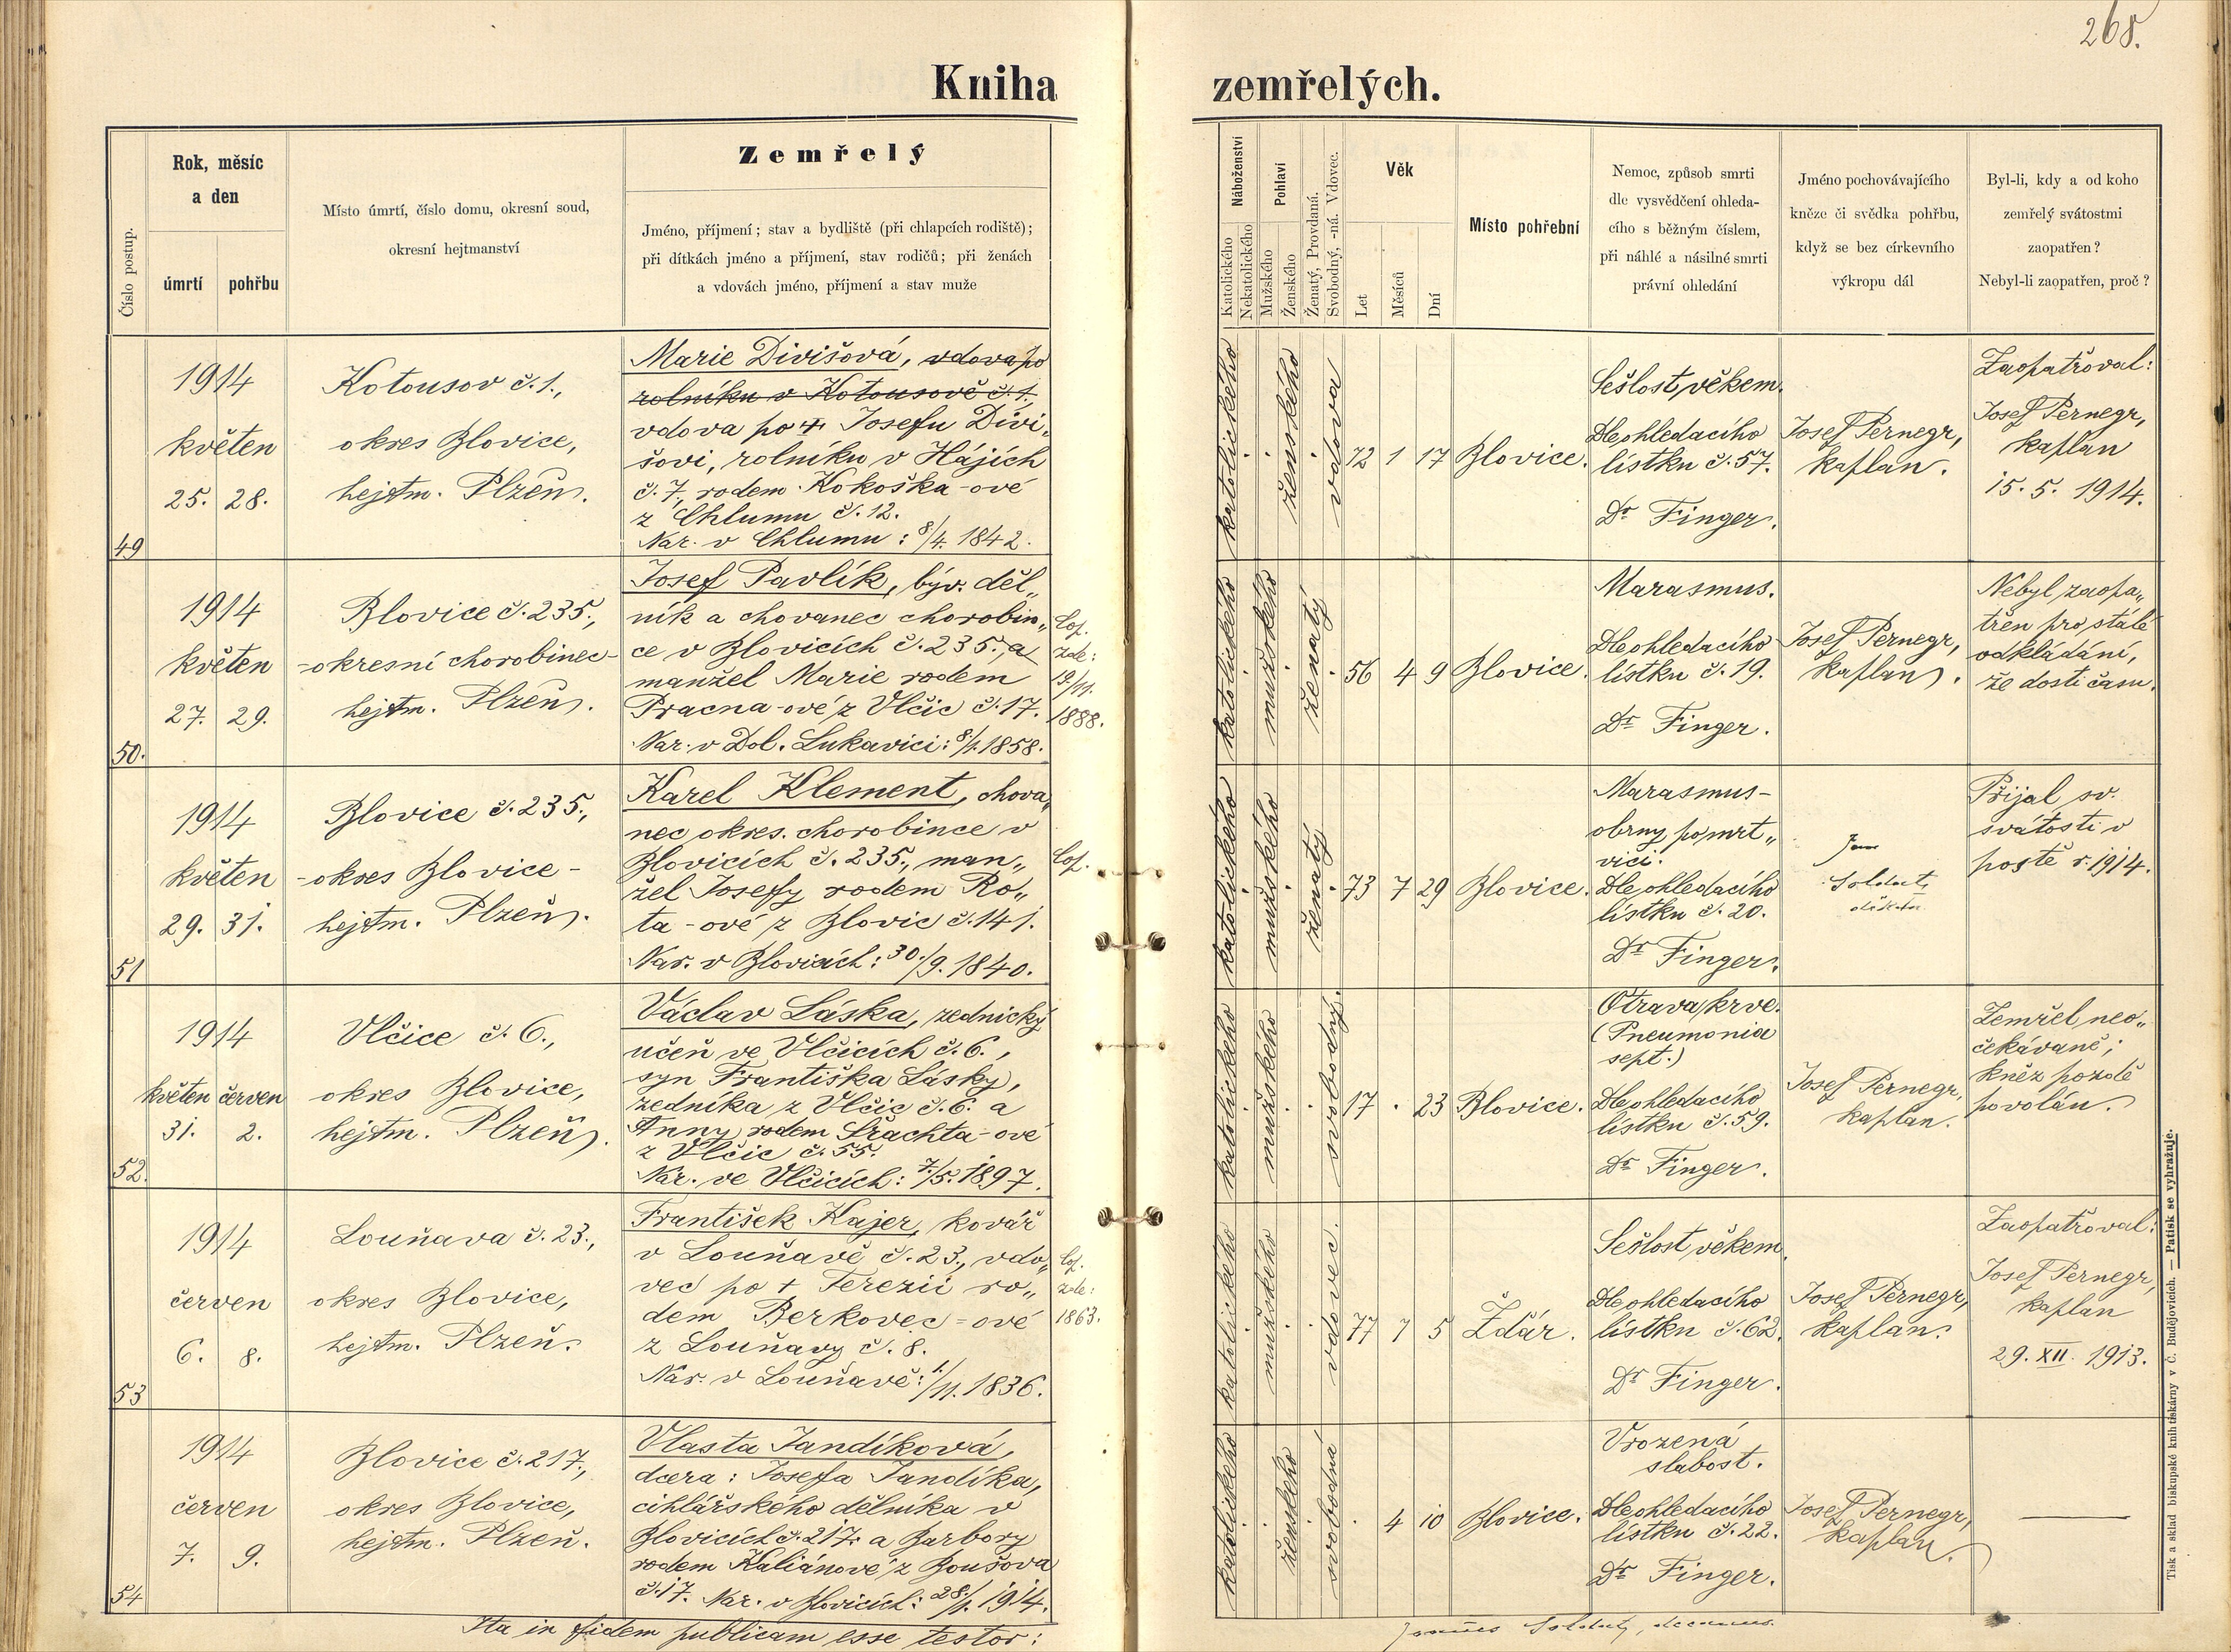 268.
Kniha zemřelých.
Číslo postup.
Rok, měsíc
a den
úmrtí
pohřbu
Místo úmrtí, číslo domu, okresní soud,
okresní hejtmanství
Zemřelý
Jméno, příjmení; stav a bydliště (při chlapcích rodiště);
při dítkách jméno a příjmení, stav rodičů; při ženách
a vdovách jméno, příjmení a stav muže
Náboženství
Katolického
Nekatolického
Pohlaví
Mužského
Ženského
Ženatý, Provdaná.
Svobodný, -ná. Vdovec.
Věk
Let
Měsíců
Dní
Místo pohřební
Nemoc, způsob smrti
dle vysvědčení ohleda-
cího s běžným číslem,
při náhlé a násilné smrti
právní ohledání
Jméno pochovávajícího
kněze či svědka pohřbu,
když se bez církevního
výkropu dál
Byl-li, kdy a od koho
zemřelý svátostmi
zaopatřen?
Nebyl-li zaopatřen, proč?
49
1914
květen
25. 28.
Kotousov č. 1.,
okres Blovice,
hejtm. Plzeň.
Marie Divišová, vdova po
rolníku v Kotousově č. 1.
vdova po + Josefu Divi„
šovi, rolníku v Hájích
č. 7, rodem Kokoška-ové
z Chlumu č. 12.
Nar. v Chlumu: 8/4. 1842.
katolického
ženského
vdova
72 1 17
Blovice.
Sešlost věkem.
Dle ohledacího
lístku č. 57.
Dr Finger.
Josef Pernegr,
kaplan.
Zaopatřoval:
Josef Pernegr,
kaplan
15. 5. 1914.
50.
1914
květen
27. 29.
Blovice č. 235.,
-okresní chorobinec-
hejtm. Plzeň.
Josef Pavlík, býv. děl„
ník a chovanec chorobin„
ce v Blovicích č. 235., a
manžel Marie rodem
Pracna-ové z Vlčic č. 17.
Nar. v Dol. Lukavici: 8/1. 1858.
Cop.
zde:
19/11.
1888.
katolického
mužského
ženatý
56 4 9
Blovice.
Marasmus.
Dle ohledacího
lístku č. 19.
Dr Finger.
Josef Pernegr,
kaplan.
Nebyl zaopa„
třen pro stálé
odkládání,
že dosti času.
51
1914
květen
29. 31.
Blovice č. 235.,
-okres Blovice-
hejtm. Plzeň.
Karel Klement, chova„
nec okres. chorobince v
Blovicích č. 235., man„
žel Josefy rodem Ro„
ta-ové z Blovic č. 141.
Nar. v Blovicích: 30./9. 1840.
Cop.
katolického
mužského
ženatý
73 7 29
Blovice.
Marasmus-
obrny po mrt„
vici.
Dle ohledacího
lístku č. 20.
Dr Finger.
Soldát
děkan
Přijal sv.
svátosti v
postě r. 1914.
52.
1914
květen červen
31. 2.
Vlčice č. 6.,
okres Blovice,
hejtm. Plzeň.
Václav Láska, zednický
učeň ve Vlčicích č. 6.,
syn Františka Lásky,
zedníka z Vlčic č. 6. a
Anny rodem Šrachta-ové
z Vlčic č. 55.
Nar. ve Vlčicích: 7./5. 1897.
katolického
mužského
svobodný.
17 . 23
Blovice.
Otrava krve.
(Pneumonia
sept.)
Dle ohledacího
lístku č. 59.
Dr Finger.
Josef Pernegr,
kaplan.
Zemřel neo„
čekávaně;
kněz pozdě
povolán.
53
1914
červen
6. 8.
Louňava č. 23.,
okres Blovice,
hejtm. Plzeň.
František Kajer, kovář
v Louňavě č. 23., vdo„
vec po + Terezii ro„
dem Berkovec-ové
z Louňavy č. 8.
Nar. v Louňavě: 1./11. 1836.
Cop.
zde:
1863.
katolického
mužského
vdovec.
77 7 5
Ždár.
Sešlost věkem.
Dle ohledacího
lístku č. 62.
Dr Finger.
Josef Pernegr,
kaplan.
Zaopatřoval:
Josef Pernegr,
kaplan
29. XII. 1913.
54
1914
červen
7. 9.
Blovice č. 217.,
okres Blovice,
hejtm. Plzeň.
Vlasta Jandíková,
dcera: Josefa Jandíka,
cihlářského dělníka v
Blovicích č. 217. a Barbory
rodem Kaliánové z Boušova
č. 17. Nar. v Blovicích: 28./1. 1914.
katolického
ženského
svobodná
. 4 10
Blovice.
Vrozená
slabost.
Dle ohledacího
lístku č. 22.
Dr Finger.
Josef Pernegr,
kaplan.
Ita in fidem publicam esse testor:
Joannes Soldát, decanus.
Tisk a sklad biskupské knihtiskárny v Č. Budějovicích. — Patisk se vyhražuje.